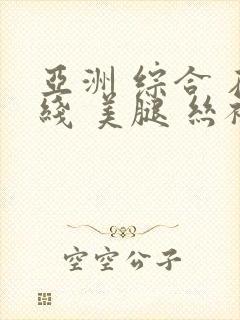 亞洲 综合
綫 美腿 丝
空空公子